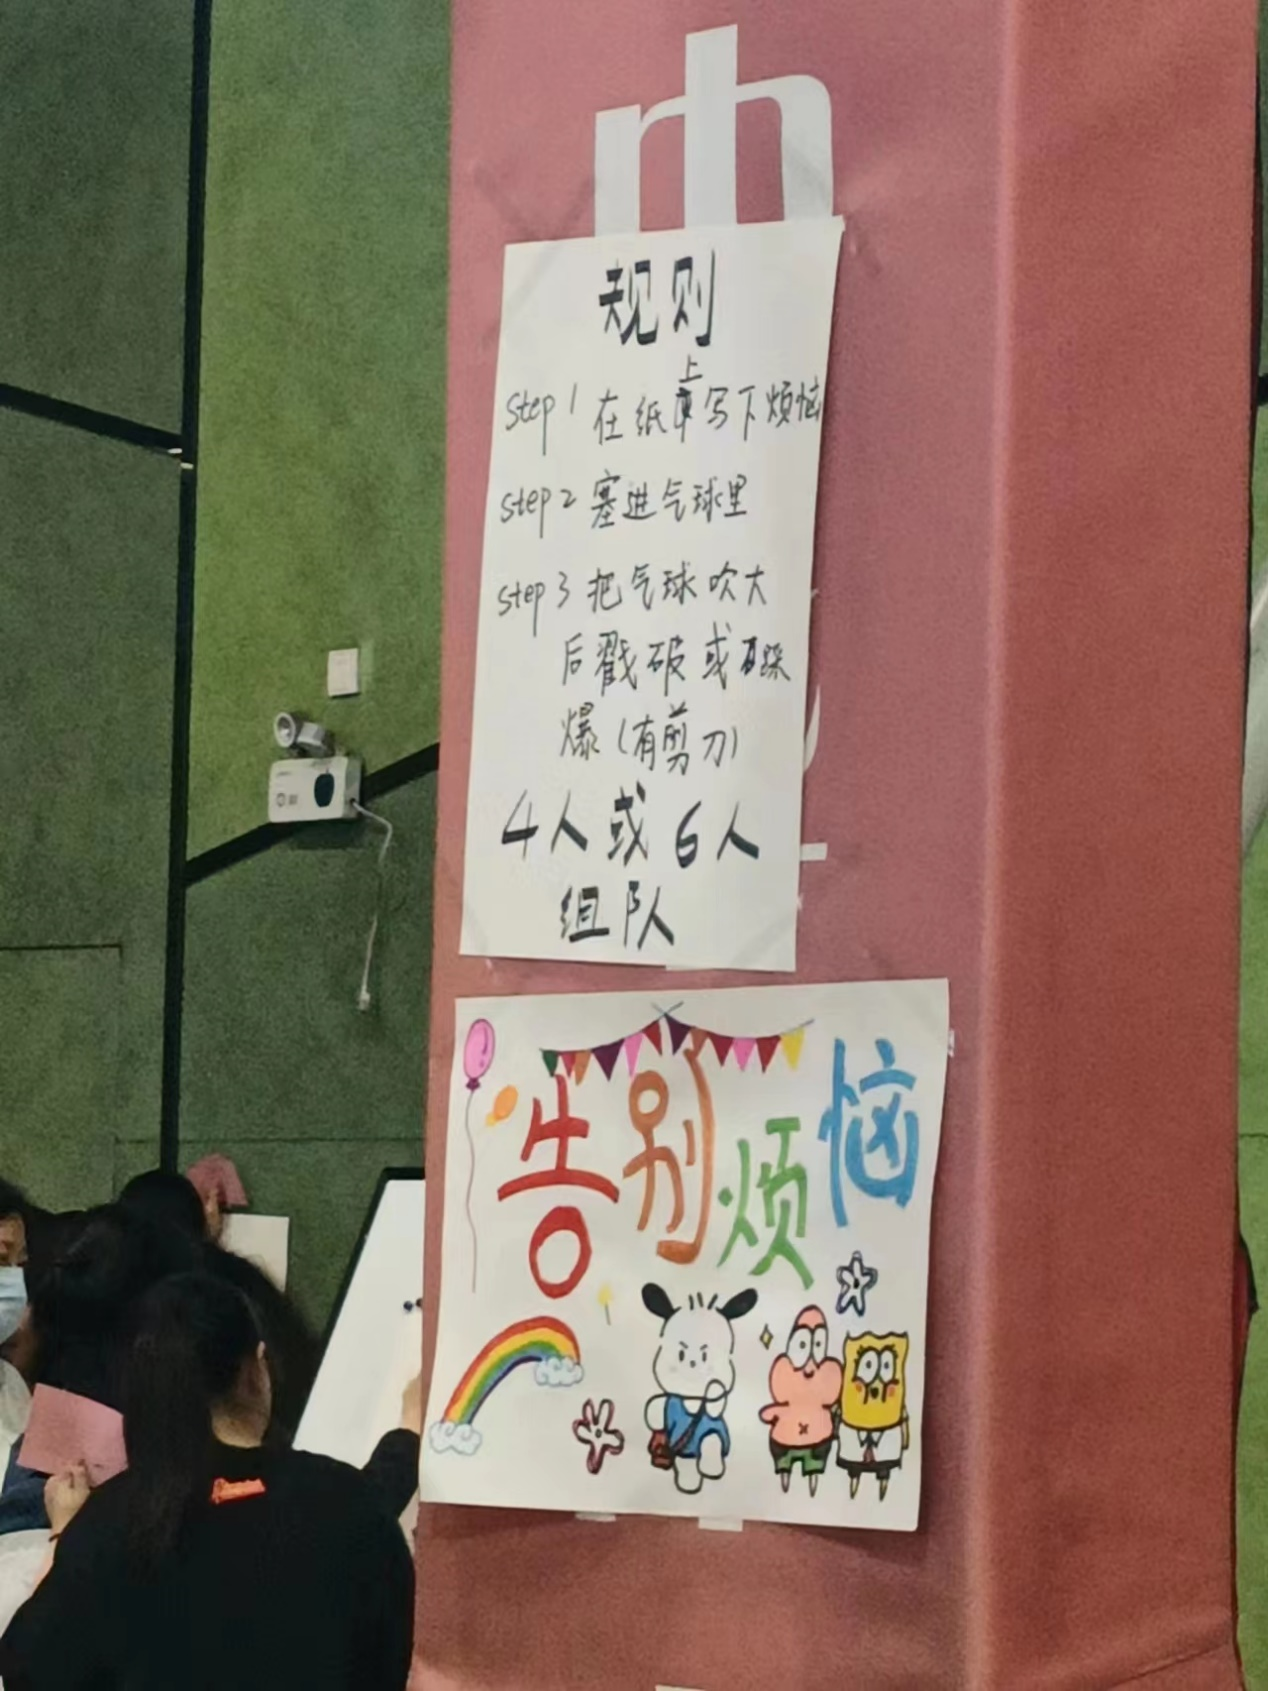 规则
step 1 在纸上写下烦恼
step 2 塞进气球里
step 3 把气球吹大
后戳破或踩
爆（有剪刀）
4人或6人
组队
告别烦恼